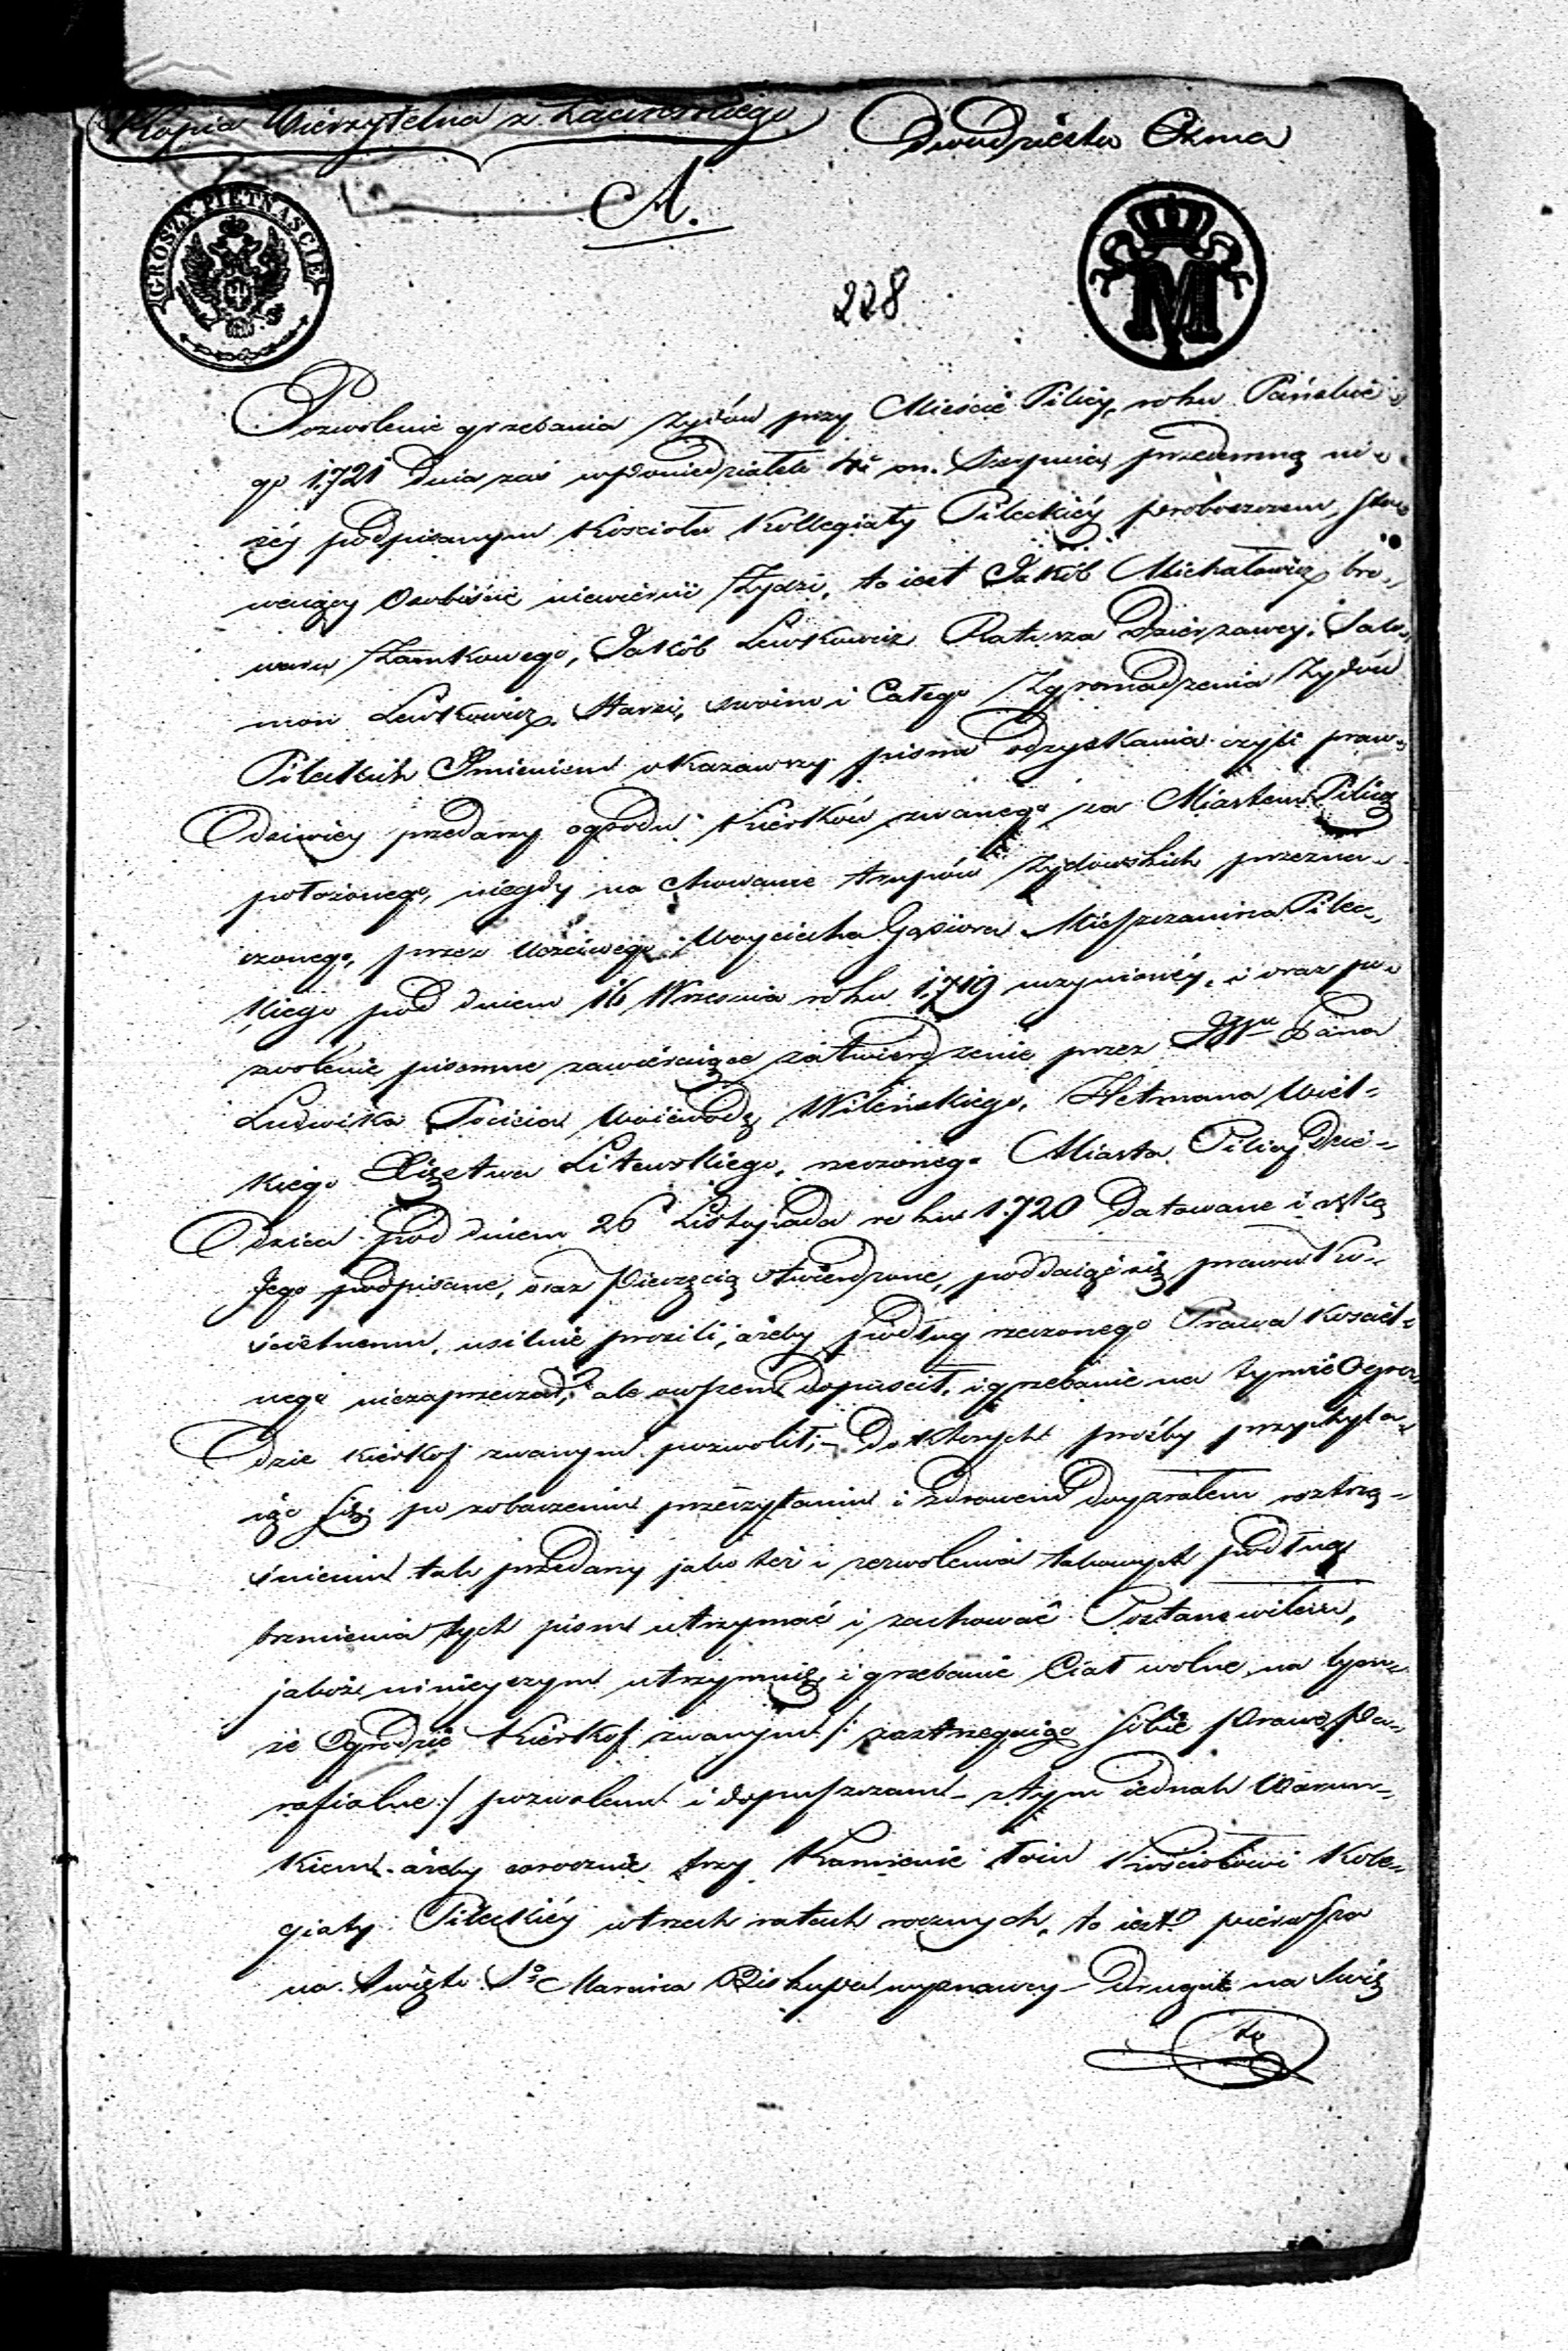 Kopia Wierzytelna z Łacińskiego
Dwudziesta Osma
A.
GROSZY PIETNASCIE
M
228
Pozwolenie grzebania Żydów przy Mieście Pilicy, roku Pańskie-
go 1721 Dnia zaś w Poniedziałek 4º m. Sierpnia, przedemną ni-
żéy podpisanym Kościoła Kollegiaty Pileckiéy proboszczem, sta-
wający Osobiście niewierni Żydzi, to iest Jakób Michałowicz bro-
waru Zamkowego, Jakób Lewkowicz Ratusza Dzierzawcy, Salo-
mon Lewkowicz Starsi, swoim i Całego Zgromadzenia Żydów
Pileckich Imieniem okazawszy pisma odzyskania czyli praw-
dziwiey przedarzy ogrodu Kierków zwanego za Miastem Pilicą
położonego, niegdy na chowanie trupów Żydowskich przezna-
czonego, przez Uczciwego Woyciecha Gąsiora Mieszczanina Pilec-
kiego pod dniem 16 Września roku 1719 uczynionéy, i oraz po-
zwolenie pisemne zawieraiące zatwierdzenie przez JWº Pana
Ludwika Pocieia Woiewodę Wileńskiego, Hetmana Wiel-
kiego Xięztwa Litewskiego, rzeczonego Miasta Pilicy Dzie-
dzica pod dniem 26 Listopada roku 1720 Datowane i ręką
Jego podpisane, oraz Pieczęcią stwierdzone, poddaiąc się prawu Ko-
ścielnemu, usilnie prosili, ażeby podług rzeczonego Prawa Kościel-
nego niezaprzeczał, ale owszem dopuścił, i grzebanie na tymże Ogro-
dzie Kierkof zwanym pozwolił; – Do których prośby przychyla-
iąc się, po zobaczeniu przeczytaniu i zdrowem Doyzrałem roztrzą-
śnieniu tak przedarzy jako też i zezwolenia takowych podług
brzmienia tych pism utrzymać i zachować Postanowiłem,
jakoż ninieyszym utrzymuię, i grzebanie Ciał wolne na tym-
że Ogrodzie Kierkof zwanym /: zastrzegaiąc sobie Prawo Pa-
rafialne :/ pozwalam i dopuszczam – z tym iednak Warun-
kiem, ażeby corocznie trzy Kamienie łoiu Kościołowi Kole-
giaty Pileckiéy w trzech ratach rocznych, to iest pierwsza
na Święto Sº Marcina Biskupa wyznawcy – Druga na Świę
to